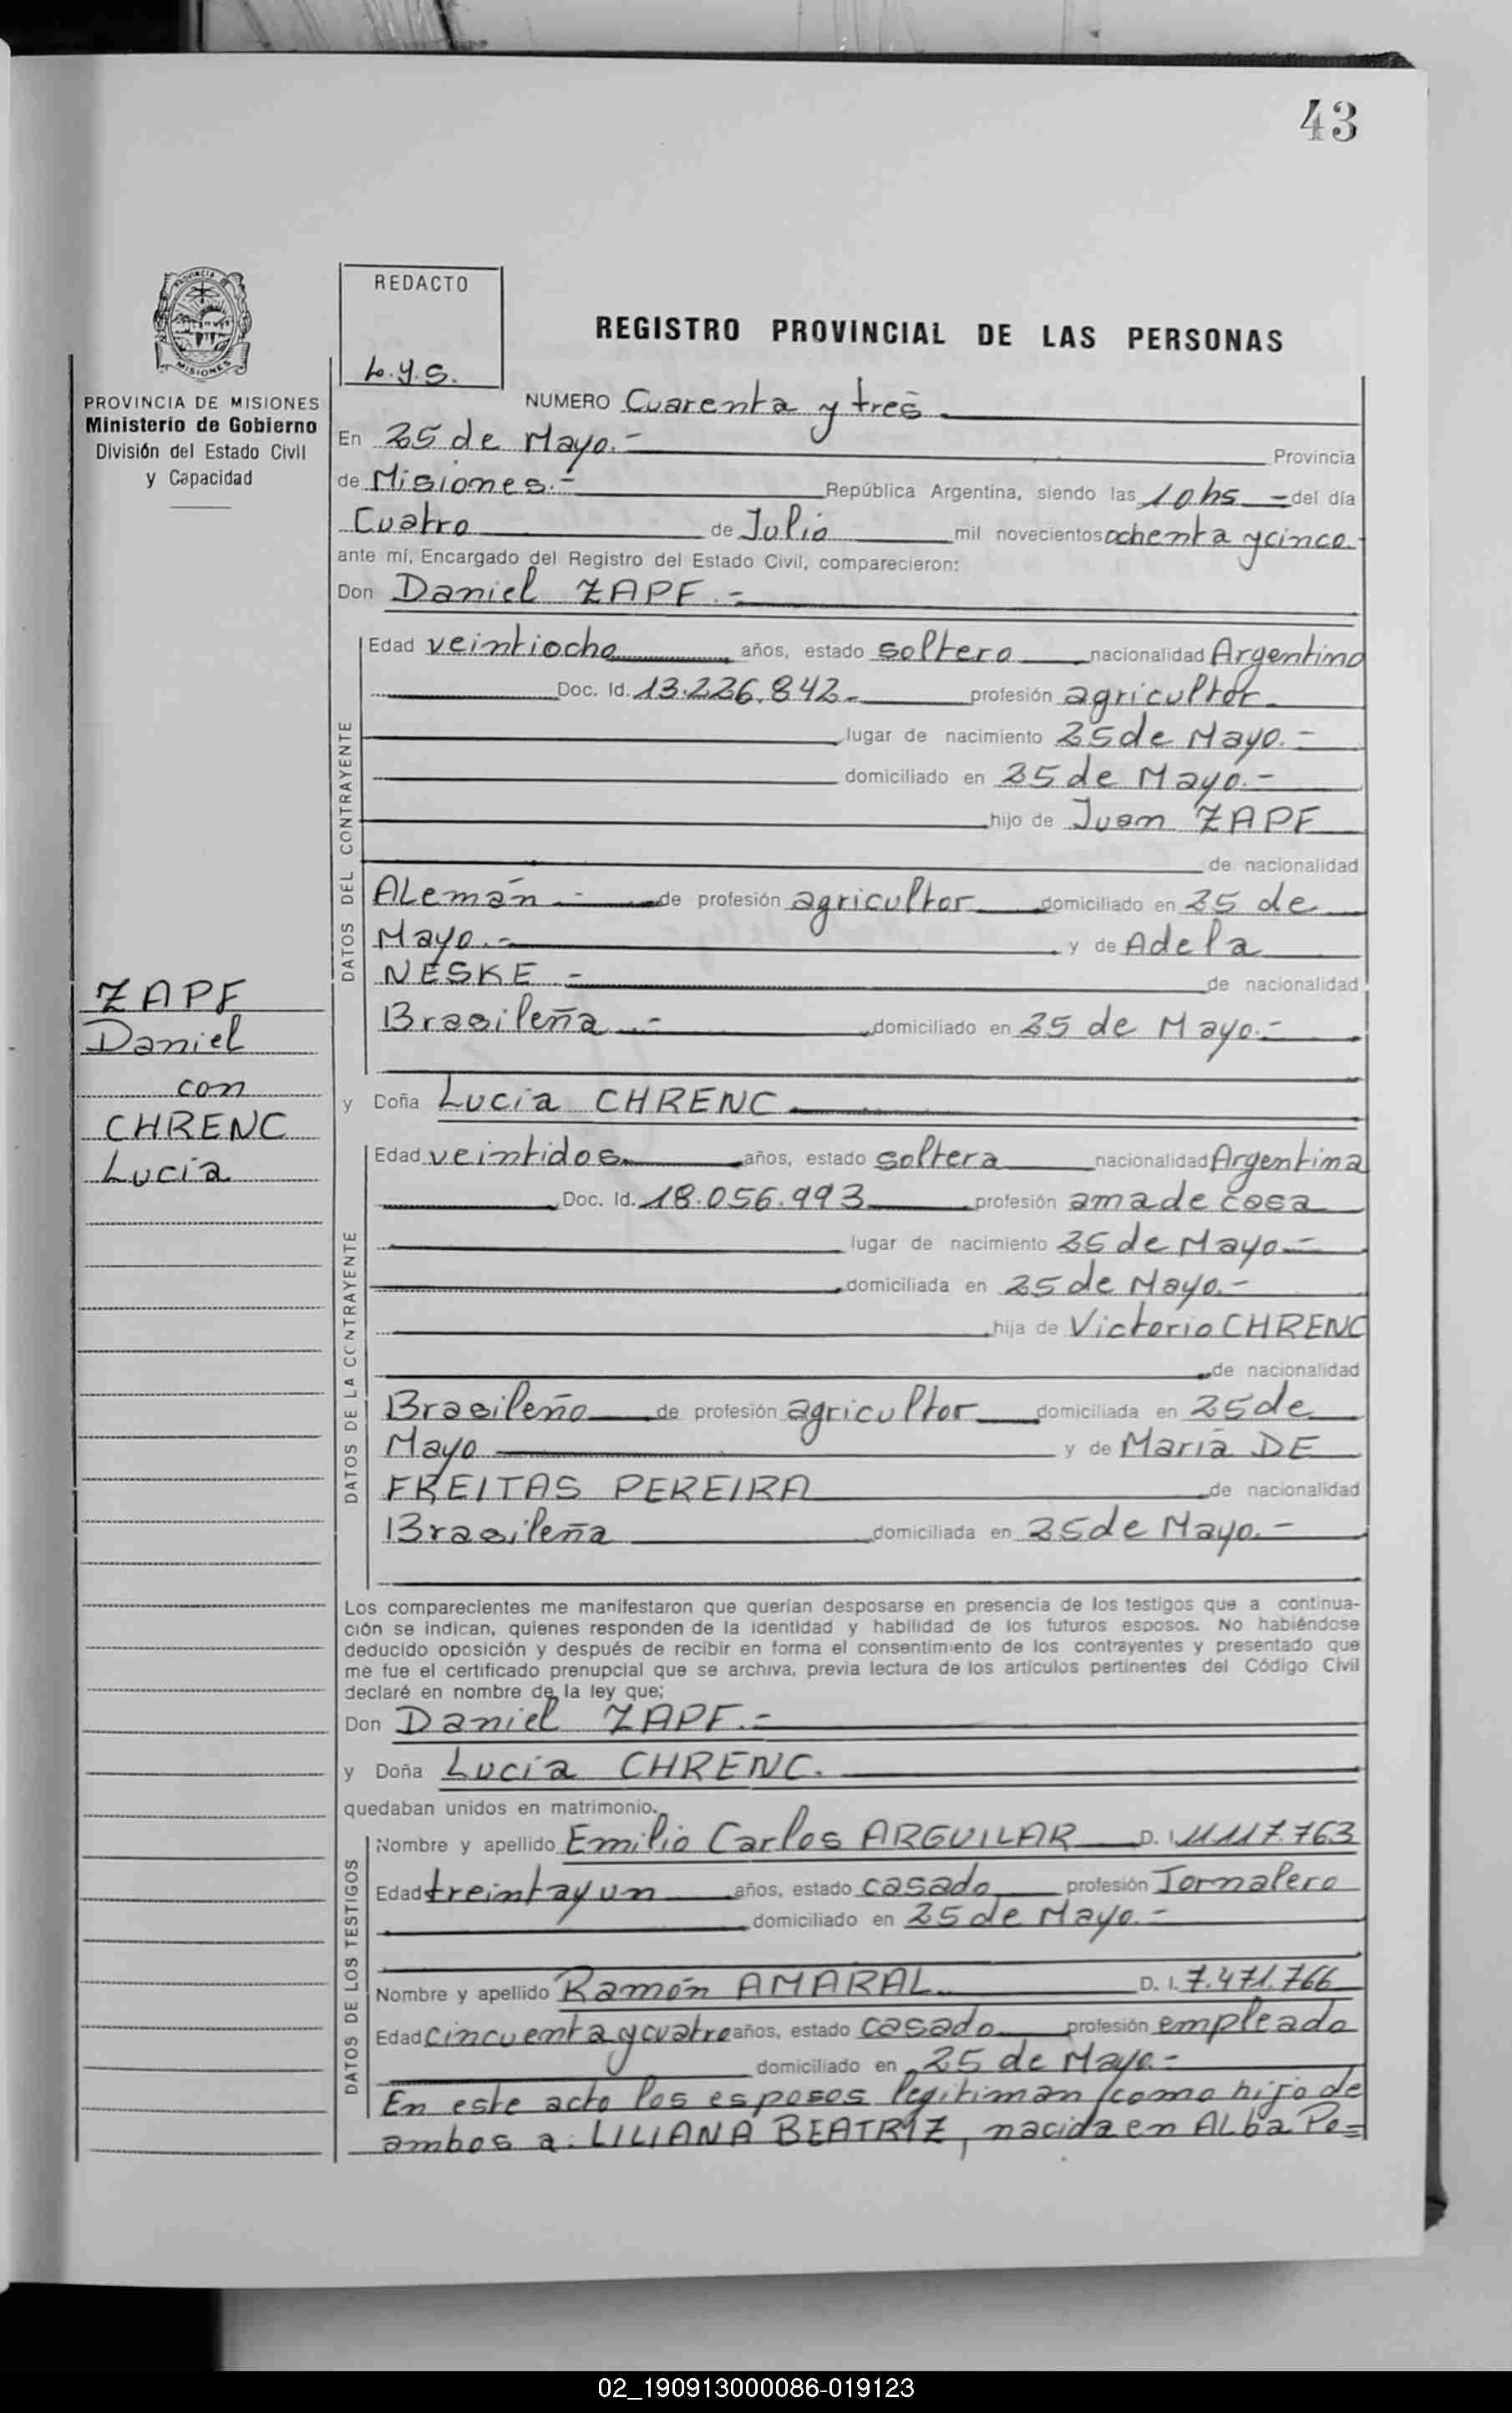 43
PROVINCIA
MISIONES
PROVINCIA DE MISIONES
Ministerio de Gobierno
División del Estado Civil
y Capacidad
ZAPF
Daniel
con
CHRENC
Lucía
REDACTO
L.y.S.
REGISTRO PROVINCIAL DE LAS PERSONAS
NUMERO Cuarenta y tres
En 25 de Mayo.- Provincia
de Misiones.- República Argentina, siendo las 10 hs = del día
Cuatro de Julio mil novecientos ochenta y cinco
ante mí, Encargado del Registro del Estado Civil, comparecieron:
Don Daniel ZAPF.-
DATOS DEL CONTRAYENTE
Edad veintiocho años, estado soltero nacionalidad Argentino
Doc. Id. 13.226.842.- profesión agricultor.
lugar de nacimiento 25 de Mayo.-
domiciliado en 25 de Mayo.-
hijo de Juan ZAPF
de nacionalidad
ALemán - de profesión agricultor domiciliado en 25 de
Mayo.- y de Adela
NESKE.- de nacionalidad
Brasileña.- domiciliado en 25 de Mayo.-
y Doña Lucía CHRENC
DATOS DE LA CONTRAYENTE
Edad veintidos años, estado soltera nacionalidad Argentina
Doc. Id. 18.056.993 profesión ama de casa
lugar de nacimiento 25 de Mayo.-
domiciliada en 25 de Mayo.-
hija de Victorio CHRENC
de nacionalidad
Brasileño de profesión agricultor domiciliada en 25 de
Mayo y de María DE
FREITAS PEREIRA de nacionalidad
Brasileña domiciliada en 25 de Mayo.-
Los comparecientes me manifestaron que querían desposarse en presencia de los testigos que a continua-
ción se indican, quienes responden de la identidad y habilidad de los futuros esposos. No habiéndose
deducido oposición y después de recibir en forma el consentimiento de los contrayentes y presentado que
me fue el certificado prenupcial que se archiva, previa lectura de los artículos pertinentes del Código Civil
declaré en nombre de la ley que;
Don Daniel ZAPF.-
y Doña Lucía CHRENC.
quedaban unidos en matrimonio.
DATOS DE LOS TESTIGOS
Nombre y apellido Emilio Carlos ARGUILAR D. I. 11.117.763
Edad treinta y un años, estado casado profesión Jornalero
domiciliado en 25 de Mayo.-
Nombre y apellido Ramón AMARAL D. I. 7.471.766
Edad cincuenta y cuatro años, estado casado profesión empleado
domiciliado en 25 de Mayo.-
En este acto los esposos legitiman como hijo de
ambos a: LILIANA BEATRIZ, nacida en ALba Po=
02_190913000086-019123